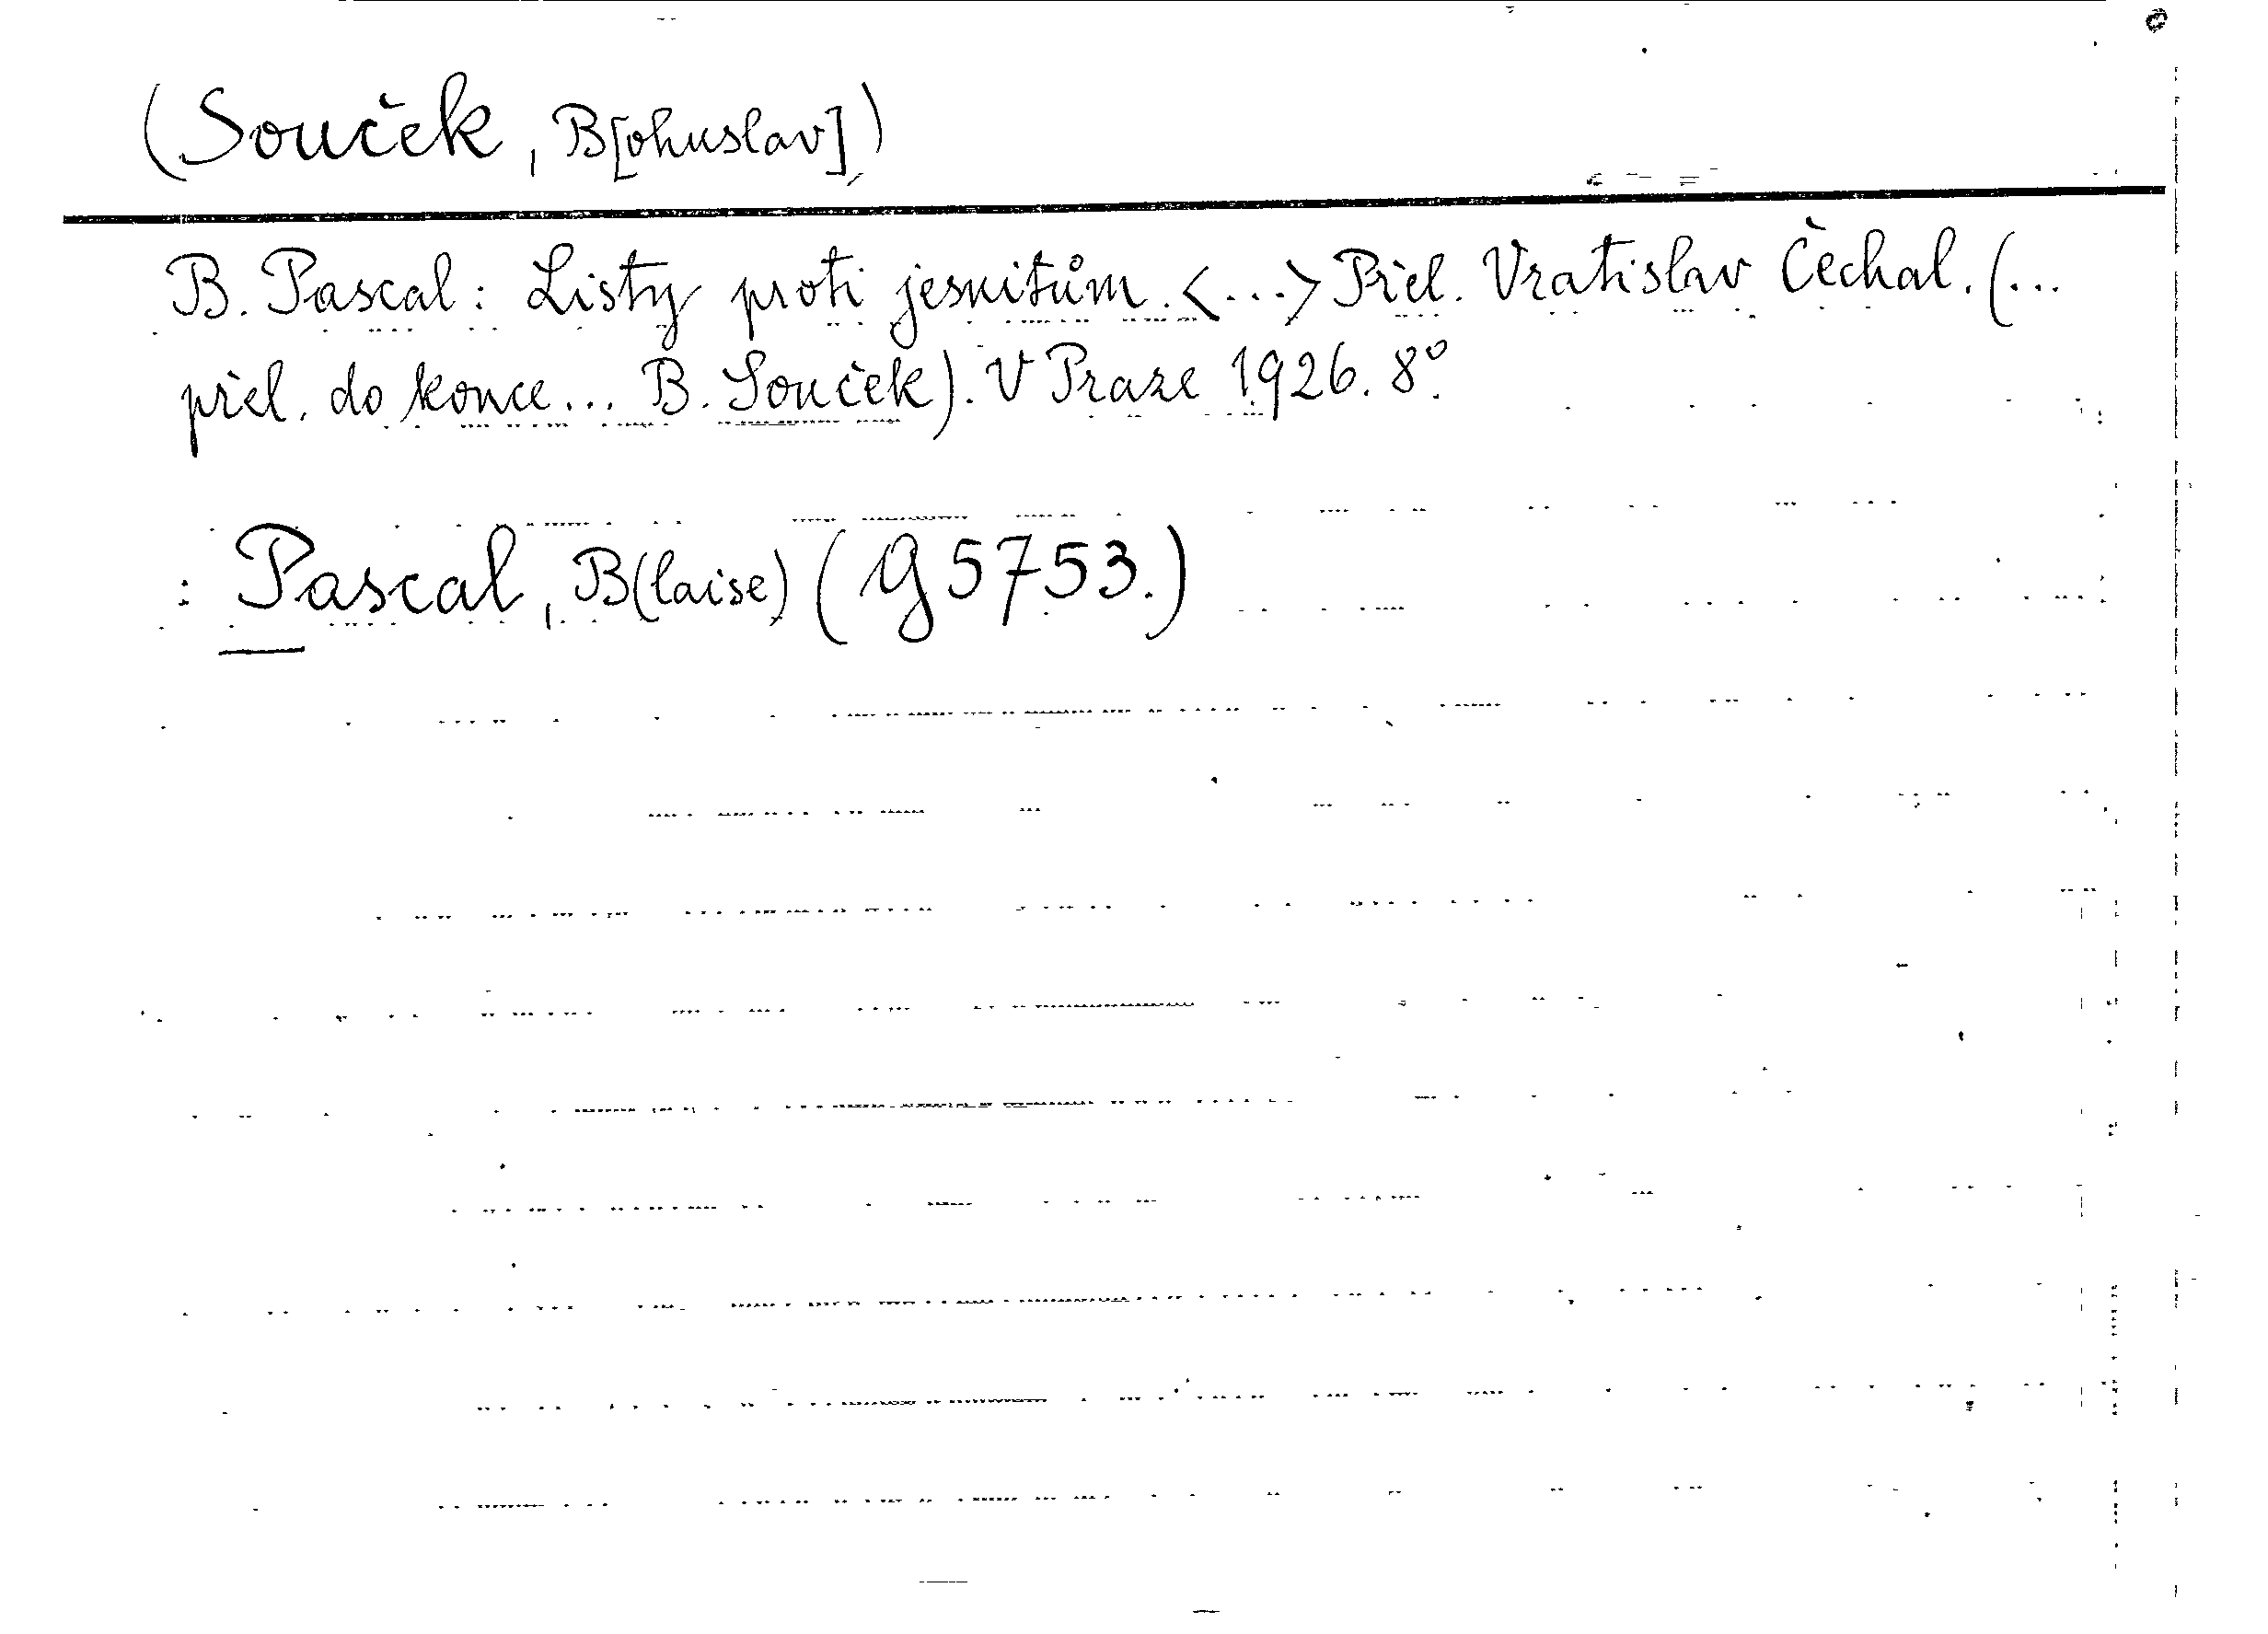 (Souček, B[ohuslav])
B. Pascal: Listy proti jesuitům. <...> Přel. Vratislav Čechal. (...
přel. do konce... B. Souček). V Praze 1926. 8°.
: Pascal, B(laise) (g 5753.)